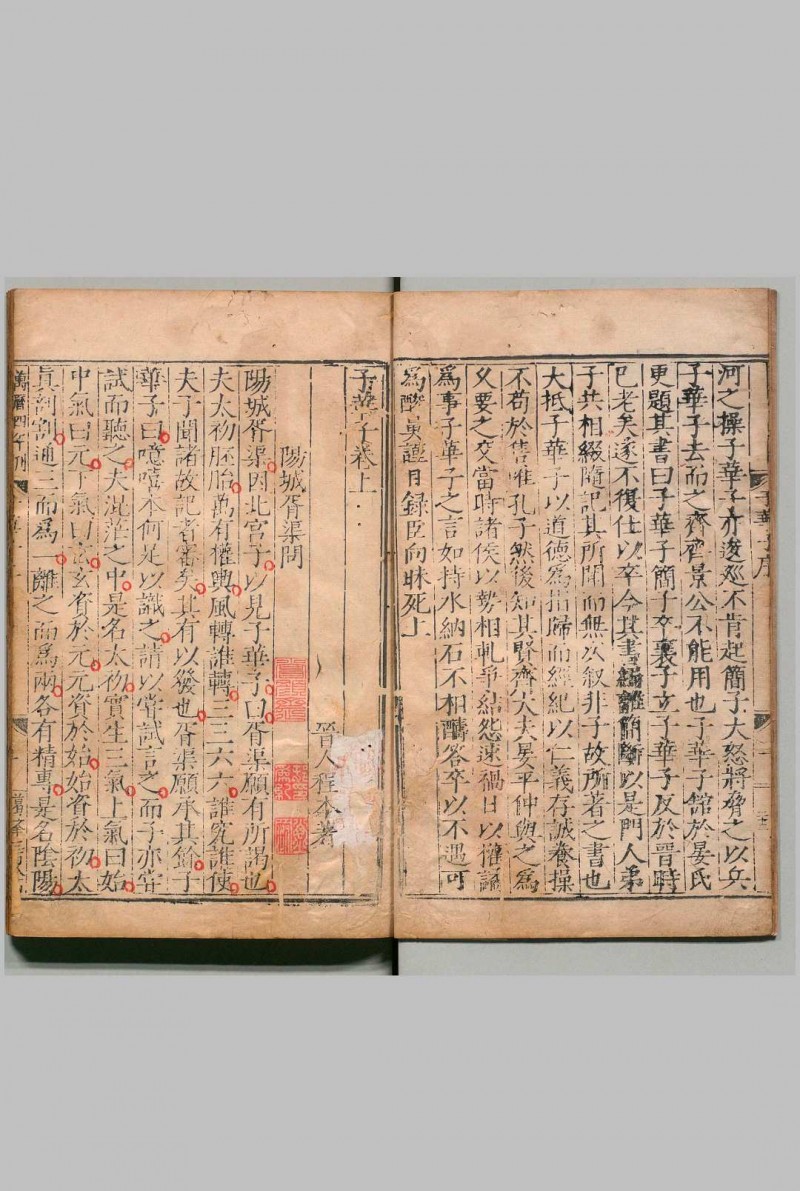 河之操子華子亦逡廵不肯起簡子大怒將脅之以兵
子華子去而之齊齊景公不能用也子華子館於晏氏
更題其書曰子華子簡子卒襄子立子華子反於晋時
已老矣遂不復仕以卒今其書編離簡斷以是門人弟
子共相綴隨記其所聞而無次叙非子故所著之書也
大抵子華子以道德爲指歸而經紀以仁義存誠養操
不苟於售唯孔子然後知其賢齊大夫晏平仲與之爲
久要之交當時諸侯以勢相軋爭結怨速禍日以權譎
爲事子華子之言如持水納石不相醻答卒以不遇可
爲酸鼻謹目録臣向昧死上
子華子序
子華子卷上
晉人程本著
陽城胥渠問
陽城胥渠因北宮子以見子華子曰胥渠願有所謁也
夫太初胚胎萬有權輿風轉誰轉三三六六誰究誰使
夫子聞諸故記者審矣其有以發也胥渠願承其餘子
華子曰噫嘻本何足以識之請以嘗試言之而子亦嘗
試而聽之夫混茫之中是名太初實生三氣上氣曰始
中氣曰元下氣曰玄玄資於元元資於始始資於初太
真剖割通三而爲一離之而爲兩各有精專是名陰陽
萬曆四年刊